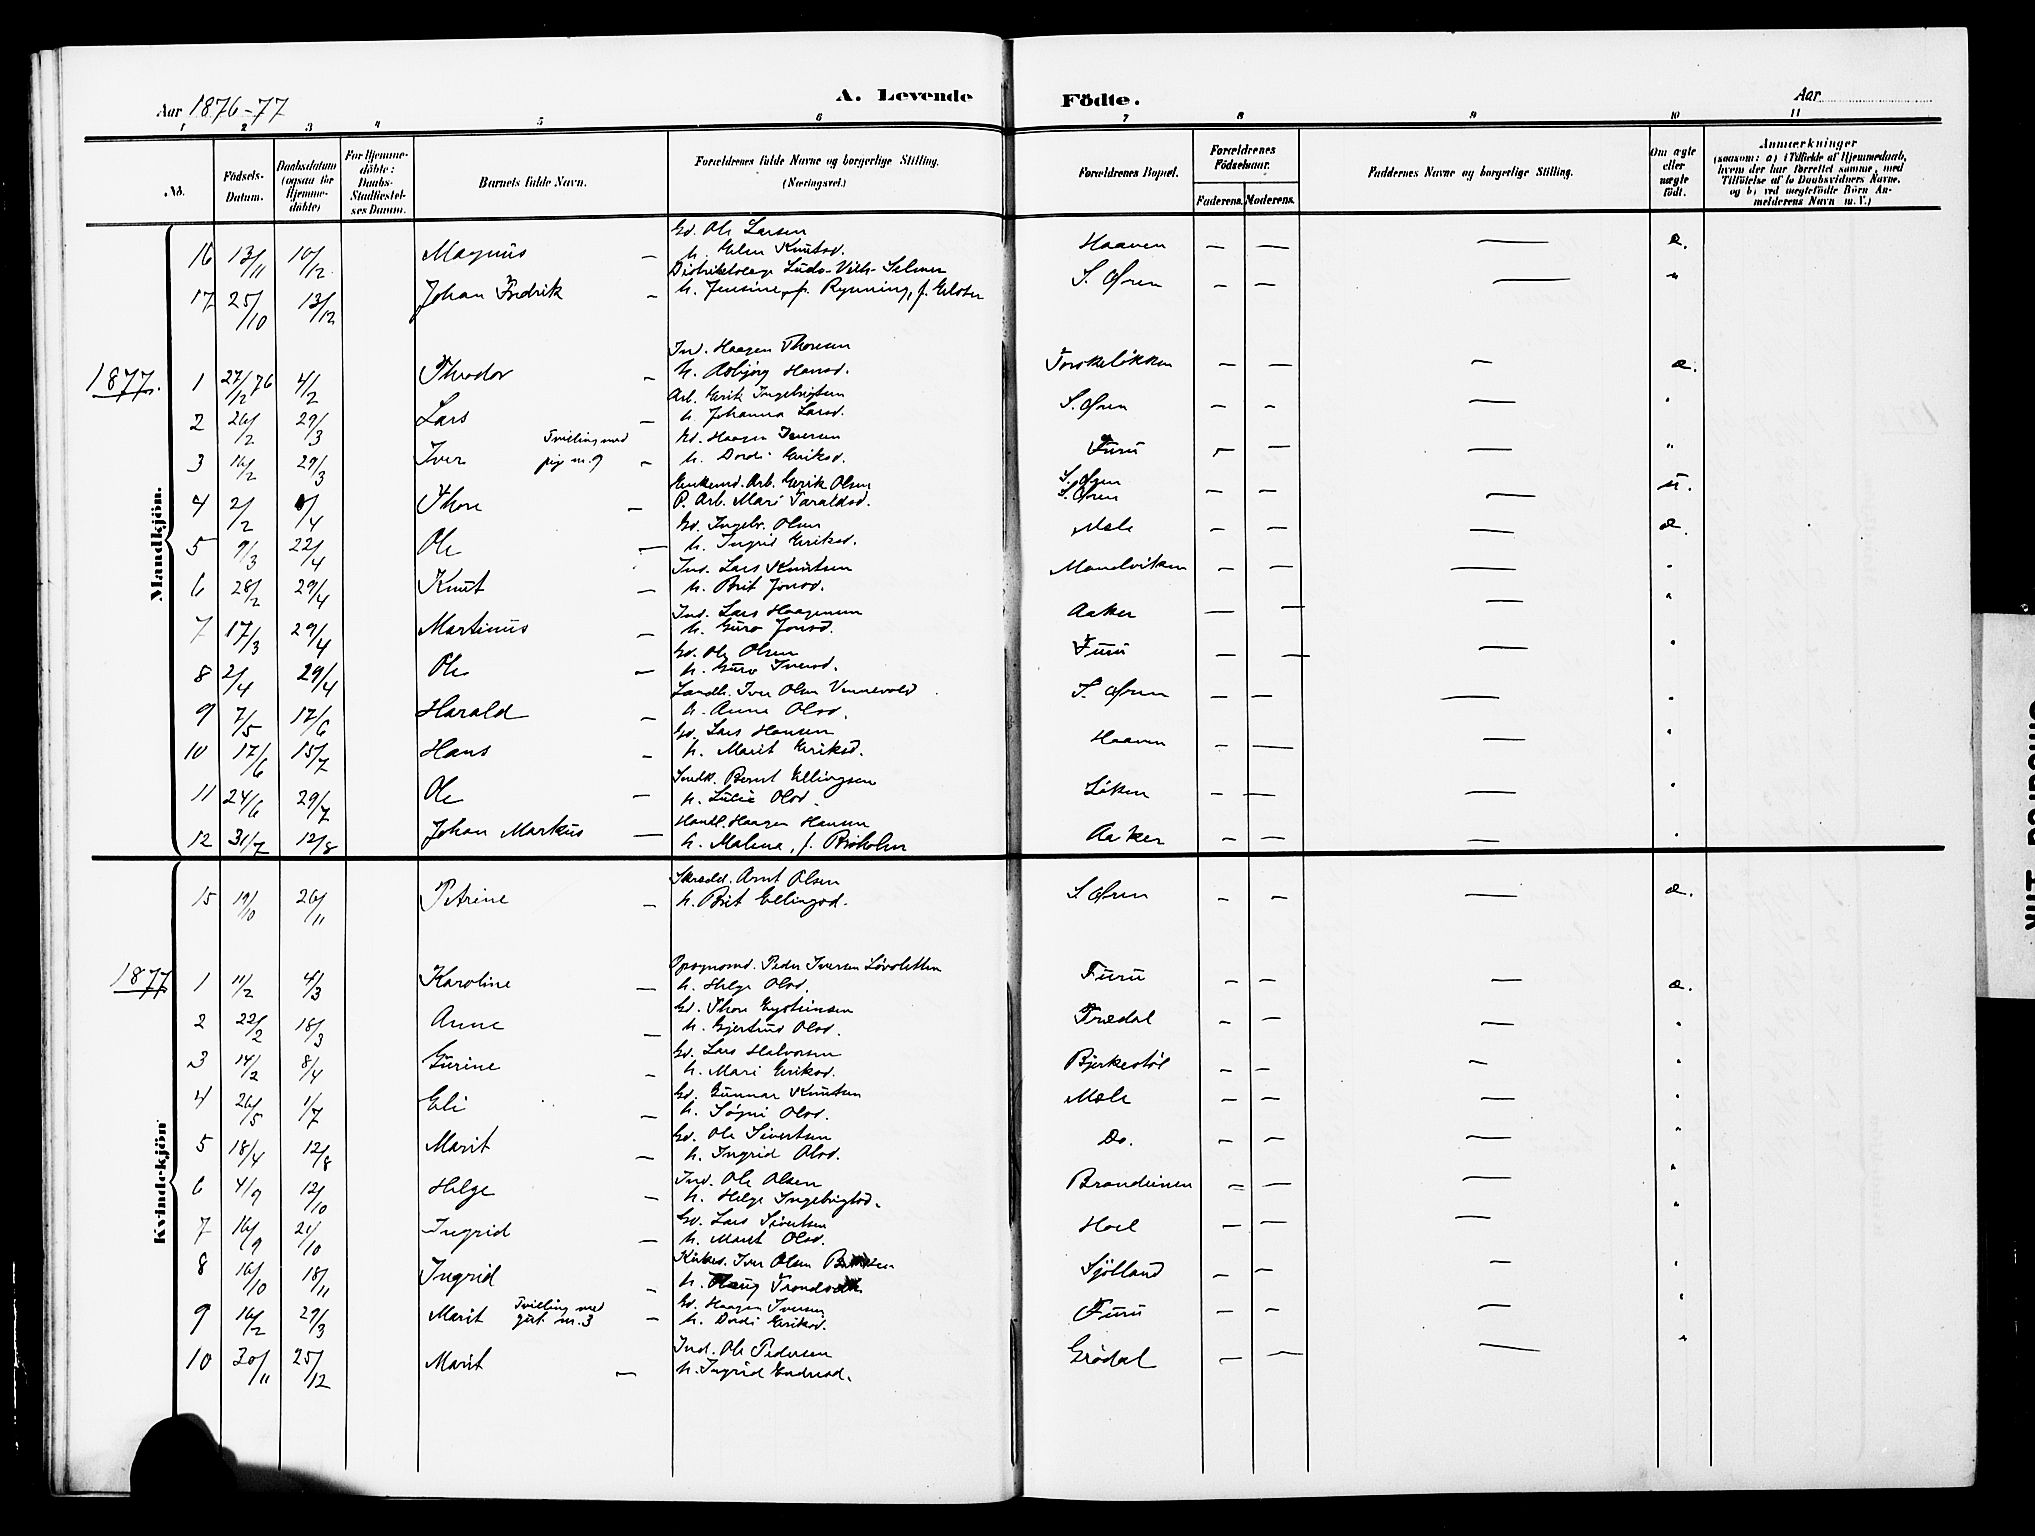 A. Levende Födte.
Aar 1876-77
Aar
1 2 3 4 5 6 7 8 9 10 11
No. Födsels-Datum. Daabsdatum (ogsaa for Hjemmedöbte) For Hjemmedöbte: Daabs-Stadfæstelses Datum. Barnets fulde Navn. Forældrenes fulde Navne og borgerlige Stilling. (Næringsvei.) Forældrenes Bopæl. Forældrenes Födselsaar. Faderens. Moderens. Faddernes Navne og borgerlige Stilling. Om ægte eller uægte födt. Anmærkninger (saasom: a) i Tilfælde af Hjemmedaab, hvem der har forrettet samme, med Tilföielse af to Daabsvidners Navne, og b) ved uægtefödte Börn Anmelderens Navn m. V.)
Mandkjön.
Gd. Ole Larsen
16 13/11 10/12 Magnus — h. Gelen Knutsd. Haaven — — — æ.
Distriktslæge Ludv. Vilh. Selmer
17 25/10 13/12 Johan Fredrik — h. Jensine f. Rynning, S. Øren — — — "
1877.
Ind. Haagen Thoresen
1 27/12 76 4/2 Theodor — h. Asbjørg Hansd. Torskeløkken — — — æ.
Arb. Erik Ingebrigtsen
2 26/2 29/3 Lars — h. Johanna Larsd. S. Øren — — — "
Gd. Haagen Iversen
3 16/2 29/3 Iver Tvilling med pige nr. 9 — h. Dordi Eriksd. Furu — — — "
Enkemd. Arb. Erik Olsen S. Øren
4 2/2 /4 Thore — P. Arb. Mari Taraldsd. S. Øren — — — u.
Gd. Ingebr. Olsen
5 9/3 22/4 Ole — h. Ingrid Eriksd. Mæle — — — æ.
Ind. Lars Knutsen
6 28/2 29/4 Knut — h. Brit Jonsd. Mandviken — — — "
Ind. Lars Haagensen
7 17/3 29/4 Martinus — h. Guro Jonsd. Aaker — — — "
Gd. Ole Olsen
8 2/4 29/4 Ole — h. Guro Iversd. Furu — — — "
Landh. Iver Olsen Vennevold
9 7/5 17/6 Harald — h. Anne Olsd. S. Øren — — — "
Gd. Lars Hansen
10 17/6 15/7 Hans — h. Marit Eriksd. Haaven — — — "
Bernt Ellingsen
11 24/6 29/7 Ole — h. Lulie Olsd. Løken — — — "
Handl. Haagen Hansen
12 31/7 12/8 Johan Markus — h. Malena, f. Birkholm Aaker — — — "
Kvindekjön
Skrædd. Arnt Olsen
15 19/10 26/11 Petrine — h. Brit Ellingsd. S. Øren — — — æ.
1877
Opsynsmd. Peder Iversen Løvoldten
1 11/2 4/3 Karoline — h. Helge Olsd. Furu — — — æ.
Gd. Thore Eysteinsen
2 22/2 18/3 Anne — h. Gjertrud Olsd. Trædal — — — "
Gd. Lars Halvorsen
3 14/2 8/4 Gurine — h. Mari Eriksd. Bjerkestøl — — — "
Gd. Gunnar Knutsen
4 26/5 1/7 Eli — h. Søgni Olsd. Mæle — — — "
Gd. Ole Sivertsen
5 18/4 12/8 Marit — h. Ingrid Olsd. Do. — — — "
Ind. Ole Olsen
6 4/9 12/10 Helge — h. Helge Ingebrigtsd. Brandeinen — — — "
Gd. Lars Sivertsen
7 16/9 21/10 Ingrid — h. Marit Olsd. Hoel — — — "
Kirkes. Iver Olsen
8 16/10 18/11 Ingrid — h. Sjølland — — — "
Gd. Haagen Iversen
9 16/2 29/3 Marit Tvilling med gut. nr. 3 — h. Dordi Eriksd. Furu — — — "
Ind. Ole Pedersen
10 30/11 25/12 Marit — h. Ingrid Endresd. Grødal — — — "